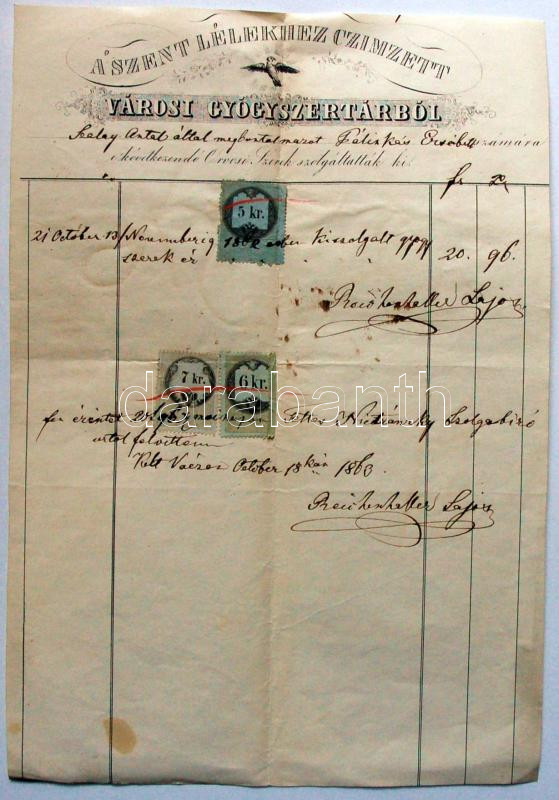 A SZENT LÉLEKHEZ CZIMZETT
VÁROSI GYÓGYSZERTÁRBÓL
Szalay Antal által meghatalmazot Erzsébet számára
a következendő Orvosi Szerek szolgáltatták ki.
fr
5 kr.
21 October 13/ Novemberig 1862 kiszolgált gyógy
szerek ér " " " " 20. 96.
Reichenhaller Lajos
7 kr. 6 kr.
darabanth
fen érintet Szolgabiró
urtol felvettem
Kelt Váczon October 18kán 1863
Reichenhaller Lajos